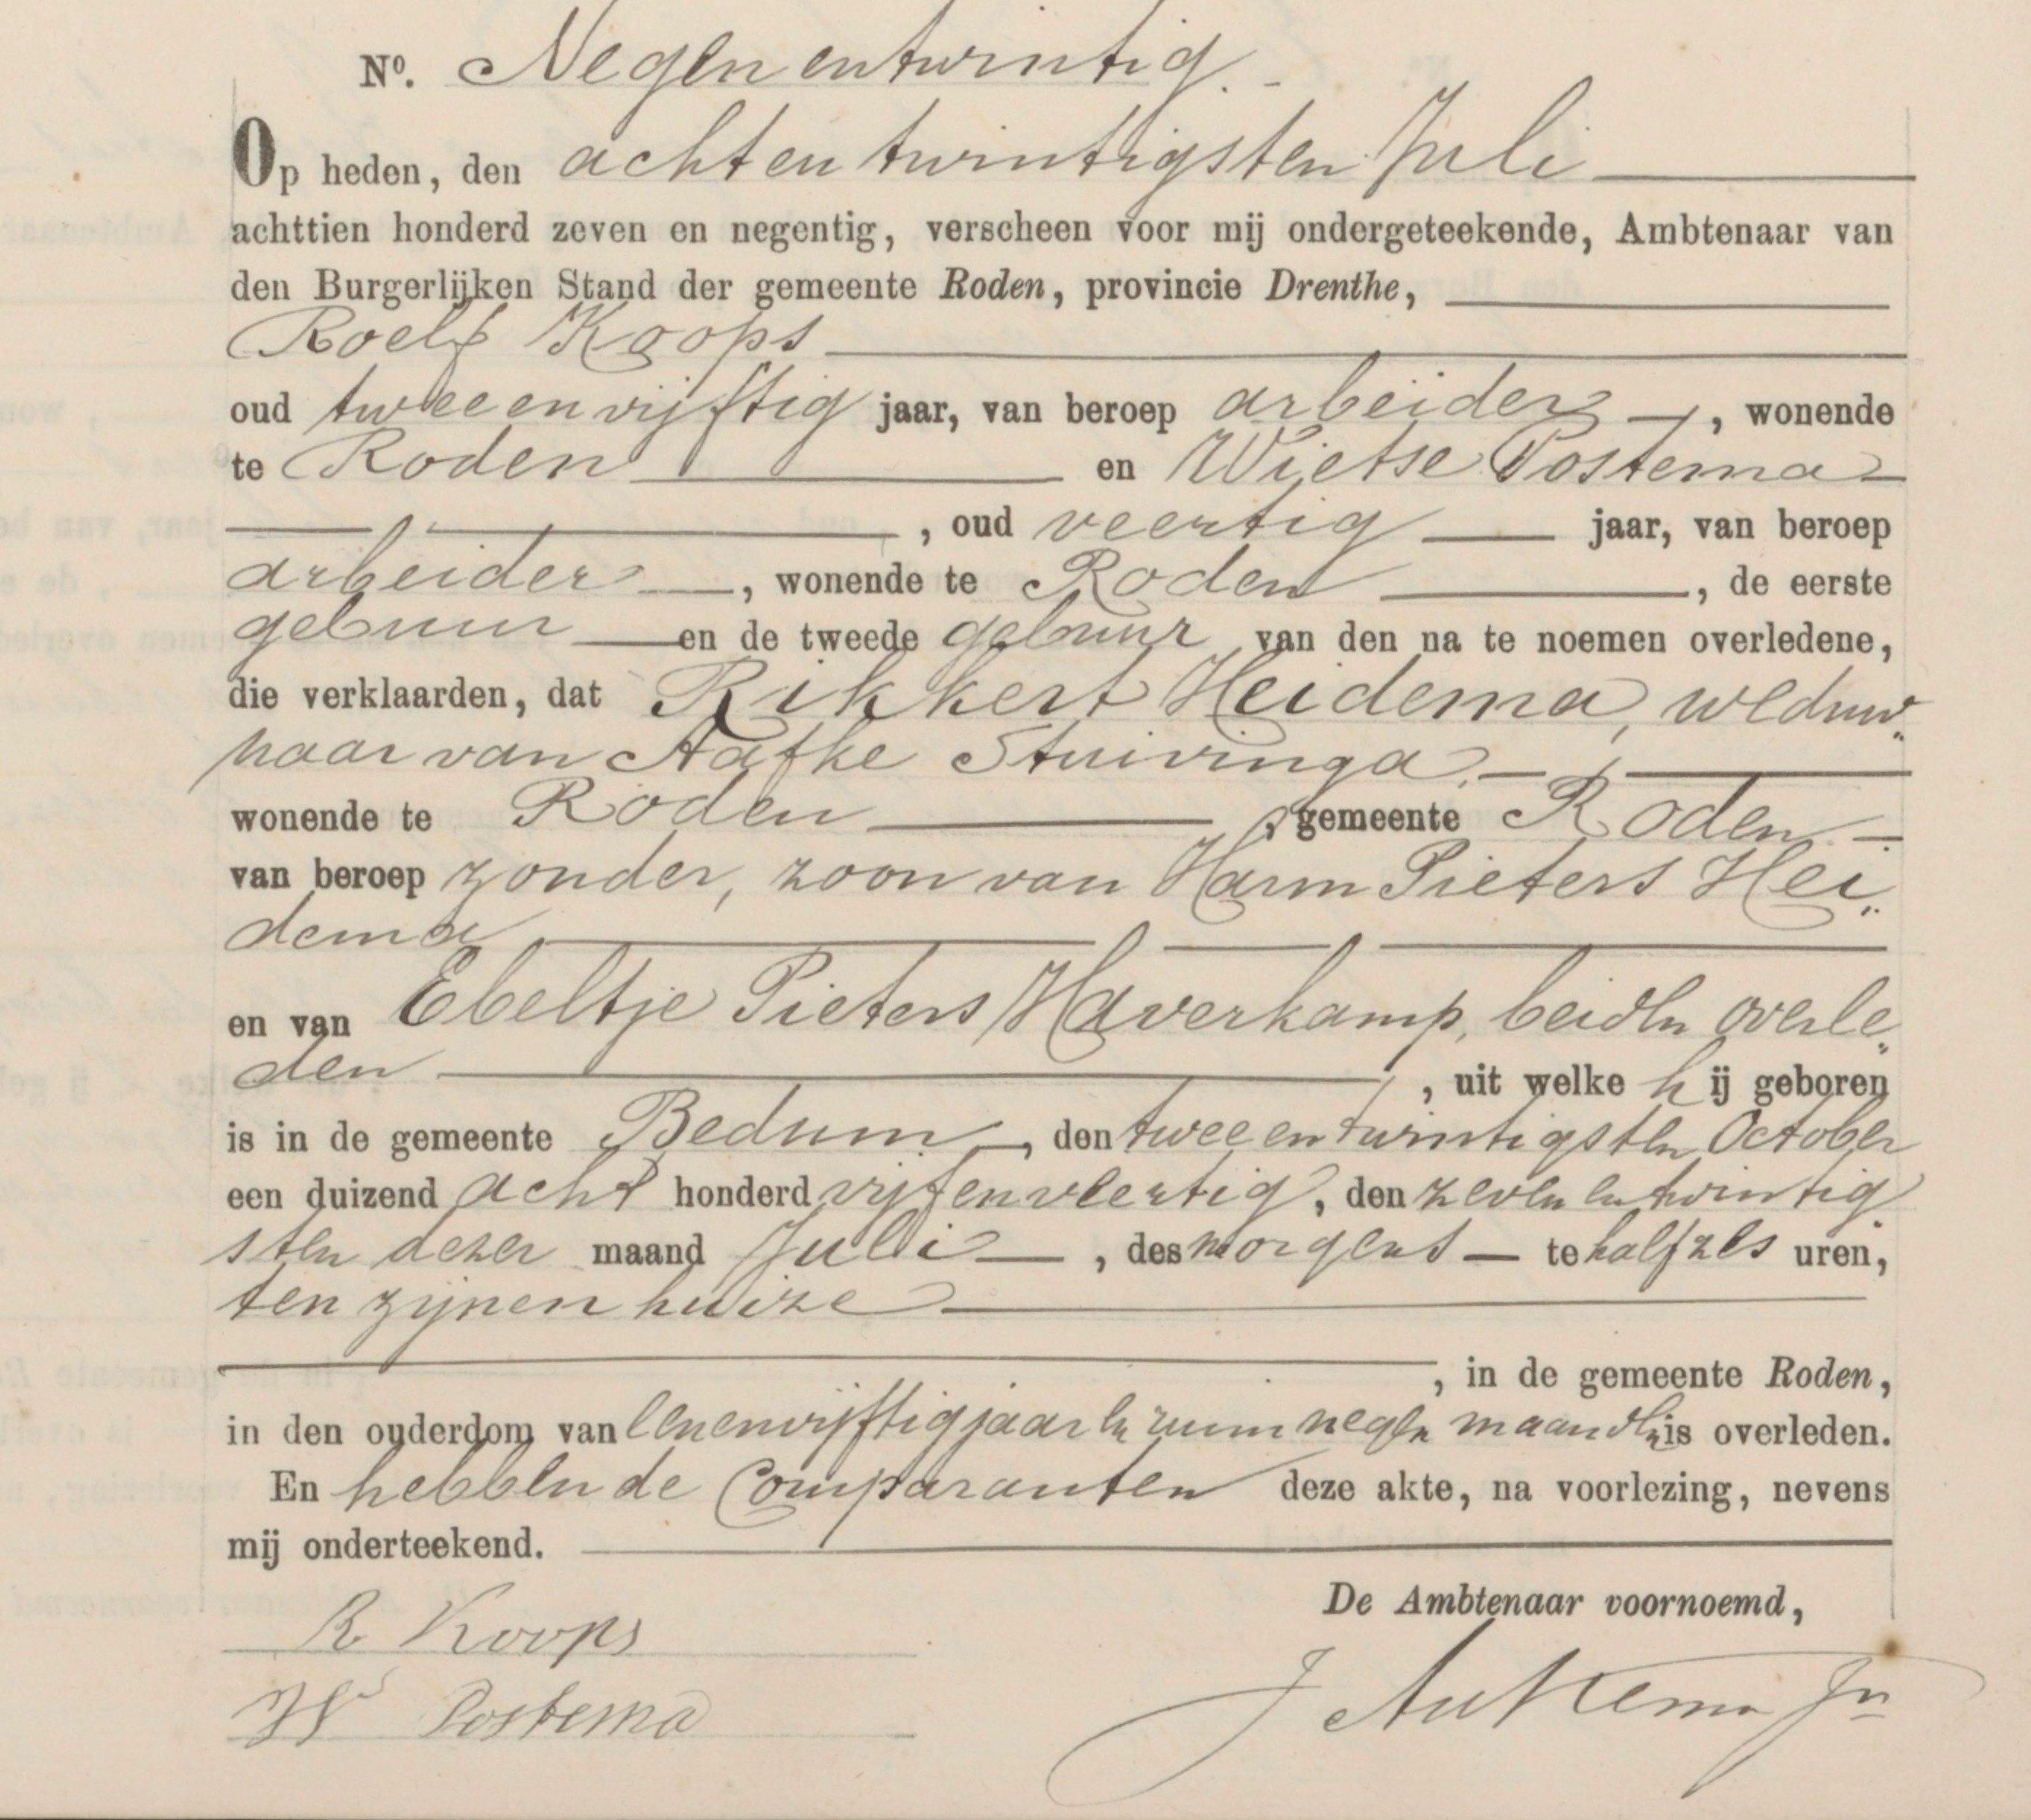 No. Negen en twintig.
Op heden, den acht en twintigsten Juli
achttien honderd zeven en negentig, verscheen voor mij ondergeteekende, Ambtenaar van
den Burgerlijken Stand der gemeente Roden, provincie Drenthe,
Roelf Koops
oud twee en vijftig jaar, van beroep arbeider, wonende
te Roden en Wietse Postema
, oud veertig jaar, van beroep
arbeider, wonende te Roden, de eerste
gebuur en de tweede gebuur van den na te noemen overledene,
die verklaarden, dat Rikkert Heidema, weduw„
naar van Aafke Stuivinga,
wonende te Roden, gemeente Roden
van beroep zonder, zoon van Harm Pieters Hei„
dema
en van Ebeltje Pieters Haverkamp, beiden overle„
den, uit welke hij geboren
is in de gemeente Bedum, den twee en twintigsten October
een duizend acht honderd vijf en veertig, den zeven en twintig„
sten dezer maand Juli, des morgens te half zes uren,
ten zijnen huize
, in de gemeente Roden,
in den ouderdom van een en vijftig jaar en ruim negen maanden is overleden.
En hebben de Comparanten deze akte, na voorlezing, nevens
mij onderteekend.
De Ambtenaar voornoemd,
R Koops
W Postema
J Aukema Jr